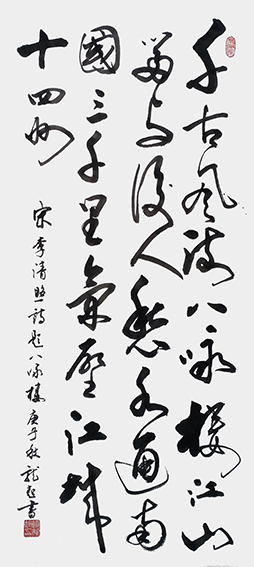 千古風流八咏樓江山
留与後人愁水通南
國三千里氣壓江城
十四州
宋李清照詩題八咏樓庚子秋龍書